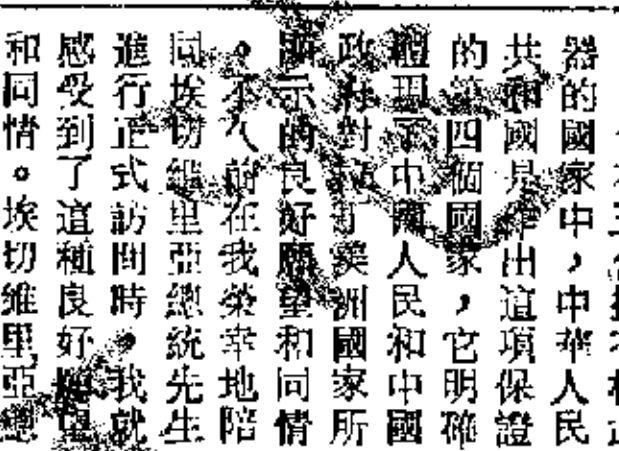 器的國家中，中華人民
共和國是作出這項保證
的第四個國家，它明確
體現了中國人民和中國
政府對拉丁美洲國家所
顯示的良好願望和同情
。不久前在我榮幸地陪
同埃切維里亞總統先生
進行正式訪問時，我就
感受到了這種良好願望
和同情。埃切維里亞總